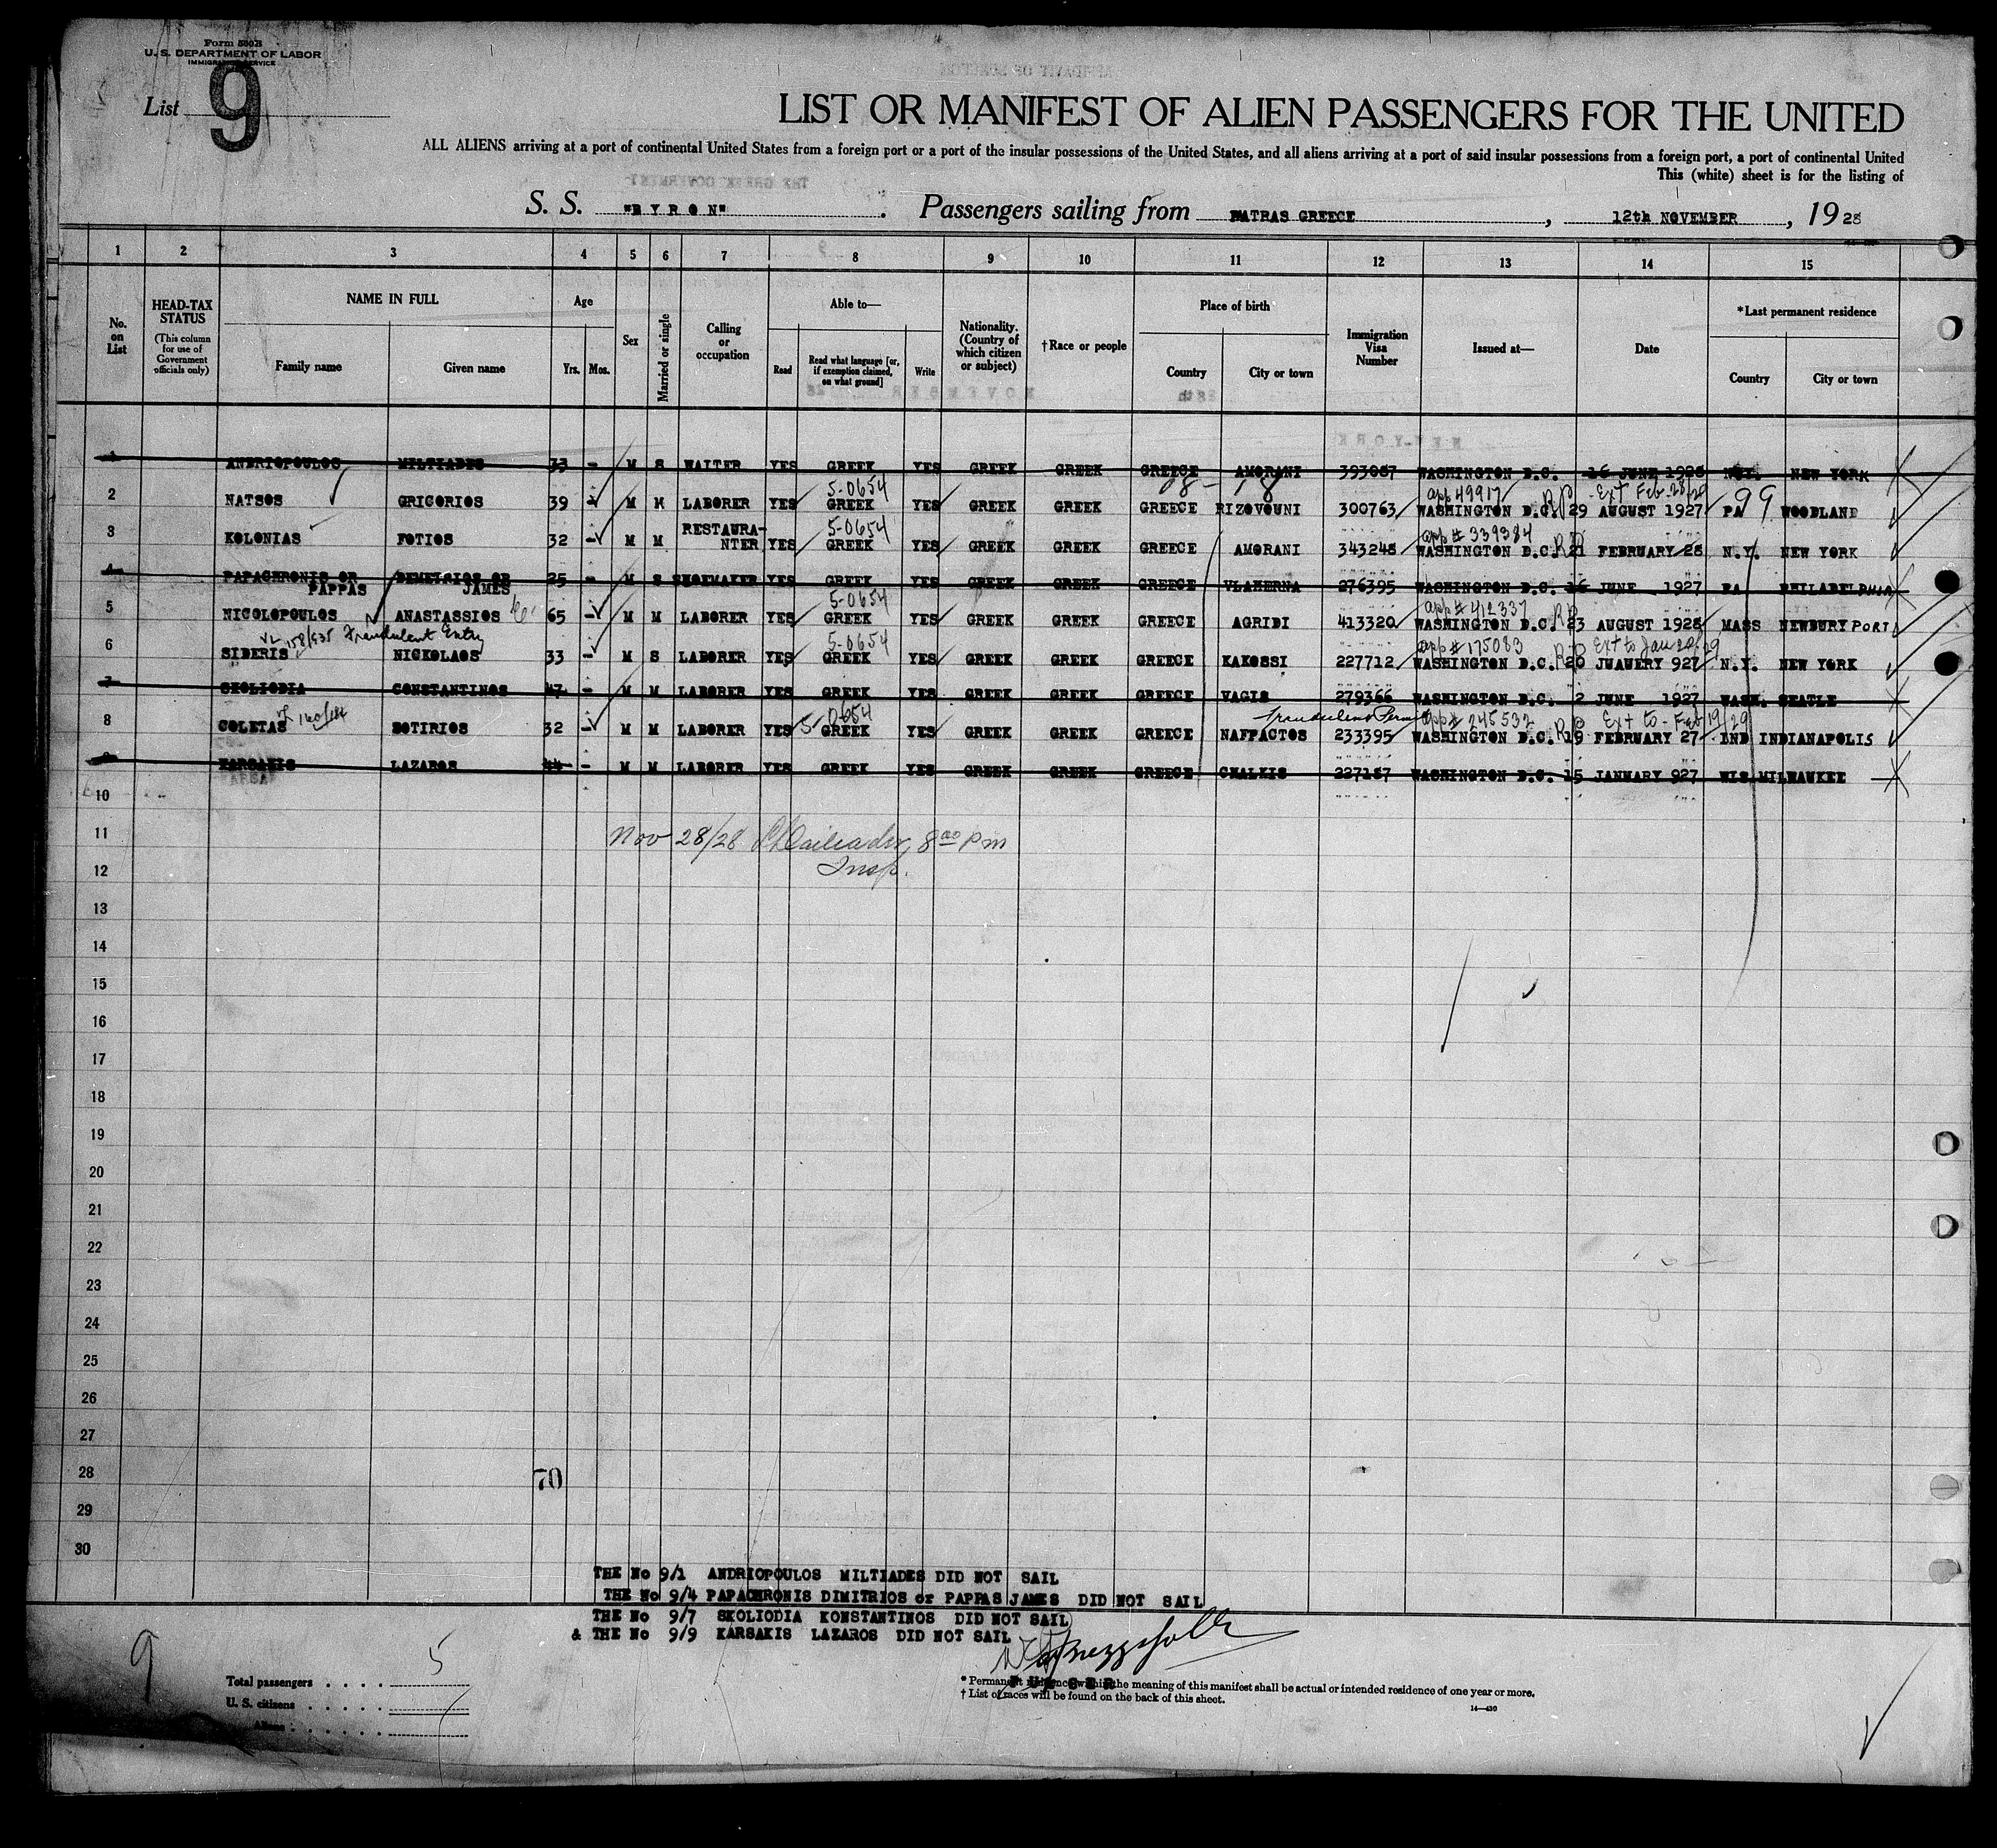 Form 500B
U. S. DEPARTMENT OF LABOR
IMMIGRATION SERVICE
List 9
LIST OR MANIFEST OF ALIEN PASSENGERS FOR THE UNITED
ALL ALIENS arriving at a port of continental United States from a foreign port or a port of the insular possessions of the United States, and all aliens arriving at a port of said insular possessions from a foreign port, a port of continental United
This (white) sheet is for the listing of
S. S. "BYRON" . Passengers sailing from PATRAS GREECE , 12th NOVEMBER , 1928
1 2 3 4 5 6 7 8 9 10 11 12 13 14 15
No. on List
HEAD-TAX STATUS
(This column for use of Government officials only)
NAME IN FULL
Family name Given name
Age
Yrs. Mos.
Sex
Married or single
Calling or occupation
Able to—
Read Read what language [or, if exemption claimed, on what ground] Write
Nationality. (Country of which citizen or subject)
†Race or people
Place of birth
Country City or town
Immigration Visa Number
Issued at—
Date
*Last permanent residence
Country City or town
1 ANDRIOPOULOS MILTIADES 33 - M S WAITER YES GREEK YES GREEK GREEK GREECE AMORANI 393087 WASHINGTON D.C. 16 JUNE 1928 N.Y. NEW YORK
5-0654 08- 18 app 49917 RP Ext Feb-28/29 99
2 NATSOS GRIGORIOS 39 - M M LABORER YES GREEK YES GREEK GREEK GREECE RIZOVOUNI 300763 WASHINGTON D.C. 29 AUGUST 1927 PA WOODLAND
RESTAURA- 5-0654 app # 339384 RP
3 KOLONIAS FOTIOS 32 - M M NTER YES GREEK YES GREEK GREEK GREECE AMORANI 343248 WASHINGTON D.C. 21 FEBRUARY 28 N.Y. NEW YORK
4 PAPACHRONIS OR DEMETSIOS OR 25 - M S SHOEMAKER YES GREEK YES GREEK GREEK GREECE VLAHERNA 276395 WASHINGTON D.C. 16 JUNE 1927 PA PHILADELPHIA
PAPPAS JAMES
5-0654 app # 412337 RP
5 NICOLOPOULOS ANASTASSIOS 65 - M M LABORER YES GREEK YES GREEK GREEK GREECE AGRIDI 413320 WASHINGTON D.C. 23 AUGUST 1928 MASS NEWBURYPORT
158/535 Fraudulent Entry 5-0654 app # 175083 RP Ext to Jan 20/29
6 SIDERIS NICKOLAOS 33 - M S LABORER YES GREEK YES GREEK GREEK GREECE KAKOSSI 227712 WASHINGTON D.C. 20 JUAUERY 927 N.Y. NEW YORK
7 SKOLIODIA CONSTANTINOS 47 - M M LABORER YES GREEK YES GREEK GREEK GREECE VAGIS 279366 WASHINGTON D.C. 2 JUNE 1927 WASH. SEATLE
5-0654 Fraudulent Perm app # 245532 RP Ext to - Feb 19/29
8 COLETAS SOTIRIOS 32 - M M LABORER YES GREEK YES GREEK GREEK GREECE NAFPACTOS 233395 WASHINGTON D.C. 19 FEBRUARY 27 IND INDIANAPOLIS
9 KARSAKIS LAZAROS 44 - M M LABORER YES GREEK YES GREEK GREEK GREECE CHALKIS 227157 WASHINGTON D.C. 15 JANMARY 927 WIS MILWAUKEE
10
11 Nov 28/28 8 00 Pm
12 Insp.
13
14
15
16
17
18
19
20
21
22
23
24
25
26
27
28 70
29
30
THE No 9/1 ANDRIOPOULOS MILTIADES DID NOT SAIL
THE No 9/4 PAPACHRONIS DIMITRIOS or PAPPAS JAMES DID NOT SAIL
THE No 9/7 SKOLIODIA KONSTANTINOS DID NOT SAIL
& THE No 9/9 KARSAKIS LAZAROS DID NOT SAIL
9
Total passengers . . . . 5
U. S. citizens . . . . .
Aliens . . . . . .
* Permanent residence within the meaning of this manifest shall be actual or intended residence of one year or more.
† List of races will be found on the back of this sheet.
14—430